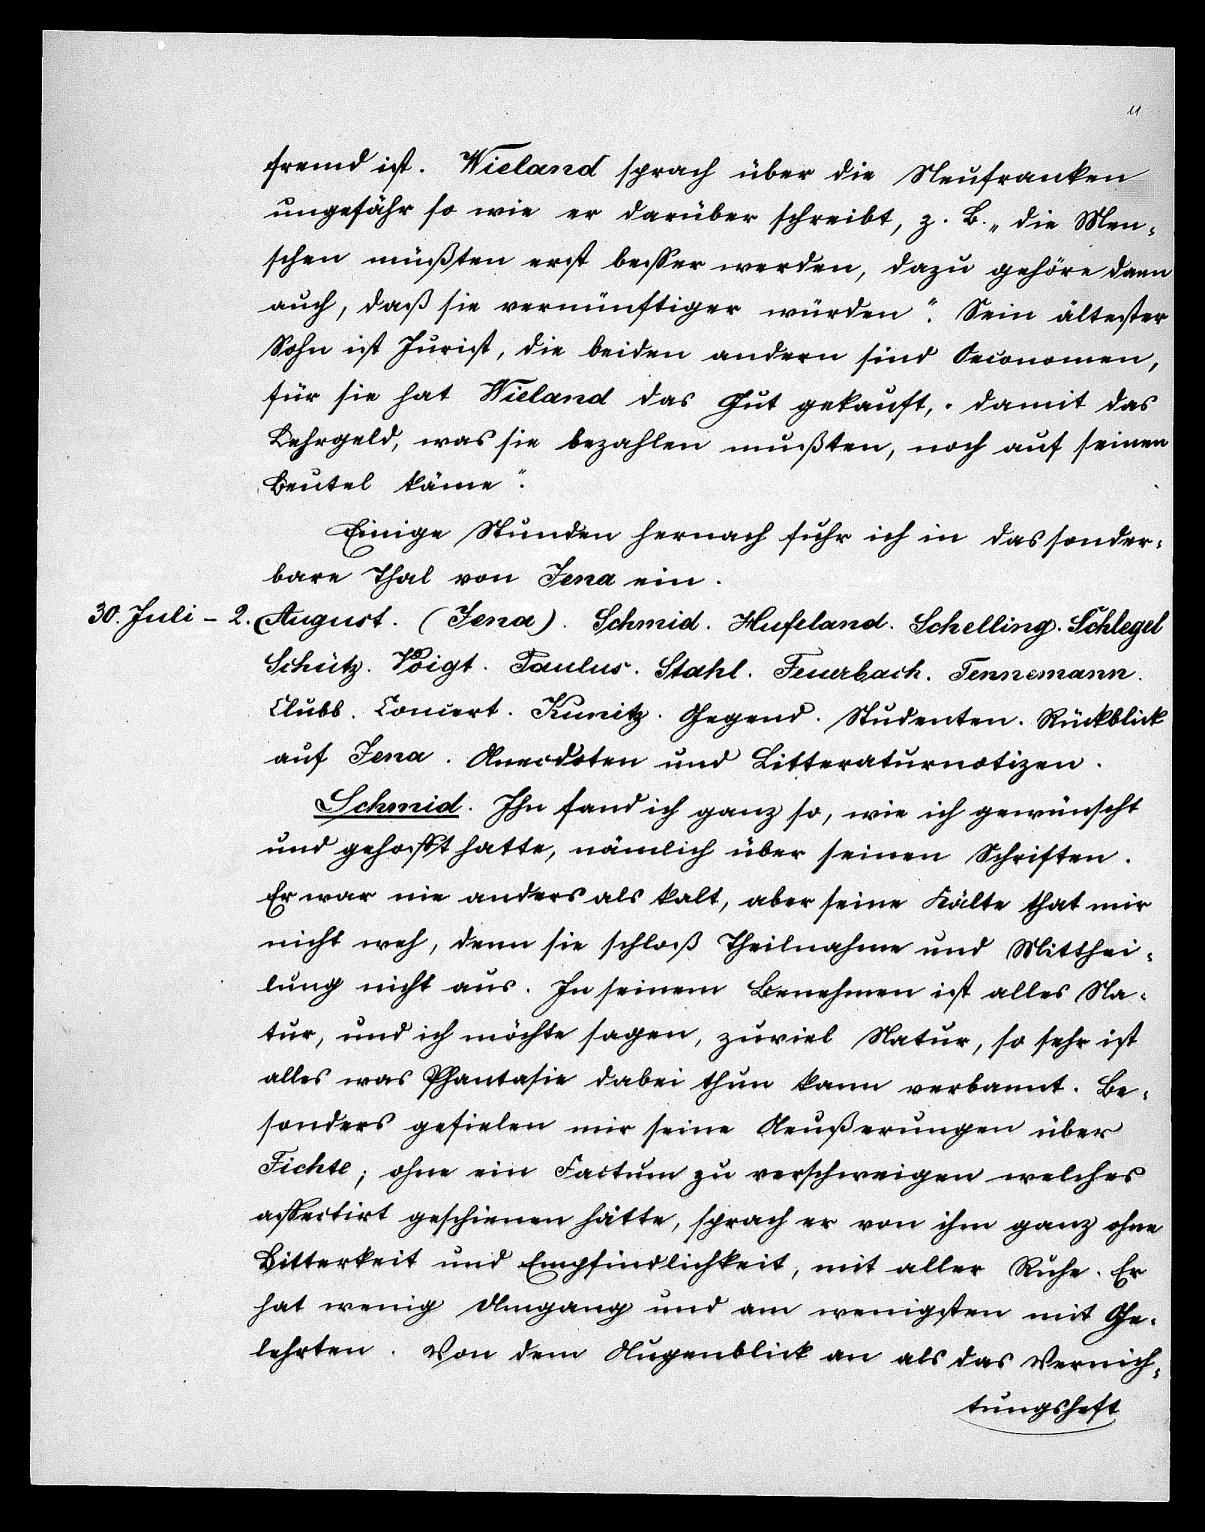 11
fremd ist. Wieland sprach über die Neufranken
ungefähr so wie er darüber schreibt, z. B. „die Men-
schen müßten erst besser werden, dazu gehöre dann
auch, daß sie vernünftiger würden“. Sein ältester
Sohn ist Jurist, die beiden andern sind Oeconomen,
für sie hat Wieland das Gut gekauft, „damit das
Lehrgeld, was sie bezahlen mußten, noch auf seinen
Beutel käme“.
Einige Stunden hernach fuhr ich in das sonder-
bare Thal von Jena ein.
30. Juli – 2. August. (Jena). Schmid. Hufeland. Schelling. Schlegel
Schütz. Voigt. Paulus. Stahl. Feuerbach. Tennemann.
Clubb. Concert. Kunitz. Gegend. Studenten. Rückblick
auf Jena. Anecdoten und Litteraturnotizen.
Schmid. Ihn fand ich ganz so, wie ich gewünscht
und gehofft hatte, nämlich über seinen Schriften.
Er war nie anders als kalt, aber seine Kälte that mir
nicht weh, denn sie schloß Theilnahme und Mitthei-
lung nicht aus. In seinem Benehmen ist alles Na-
tur, und ich möchte sagen, zuviel Natur, so sehr ist
alles was Phantasie dabei thun kann verbannt. Be-
sonders gefielen mir seine Aeußerungen über
Fichte; ohne ein Factum zu verschweigen welches
affectirt geschienen hätte, sprach er von ihm ganz ohne
Bitterkeit und Empfindlichkeit, mit aller Ruhe. Er
hat wenig Umgang und am wenigsten mit Ge-
lehrten. Von dem Augenblick an als das Vernich-
tungsheft